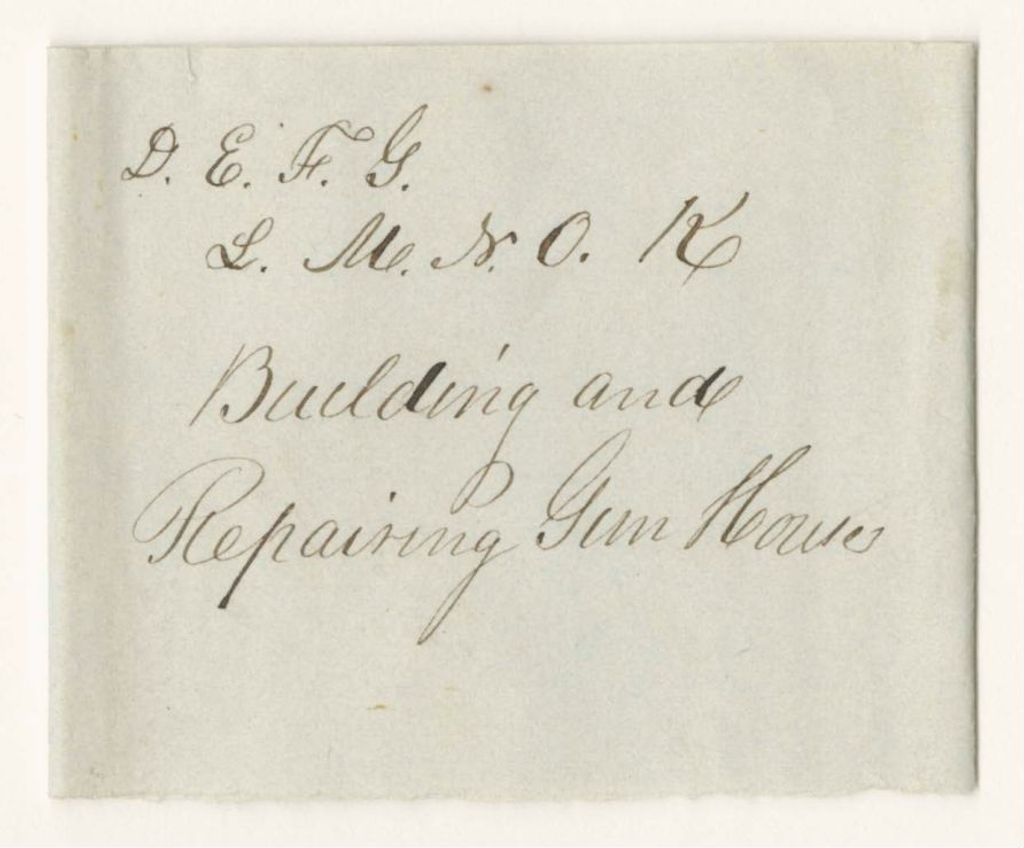 D. E. F. G.
L. M. N. O. K
Building and
Repairing Gun House